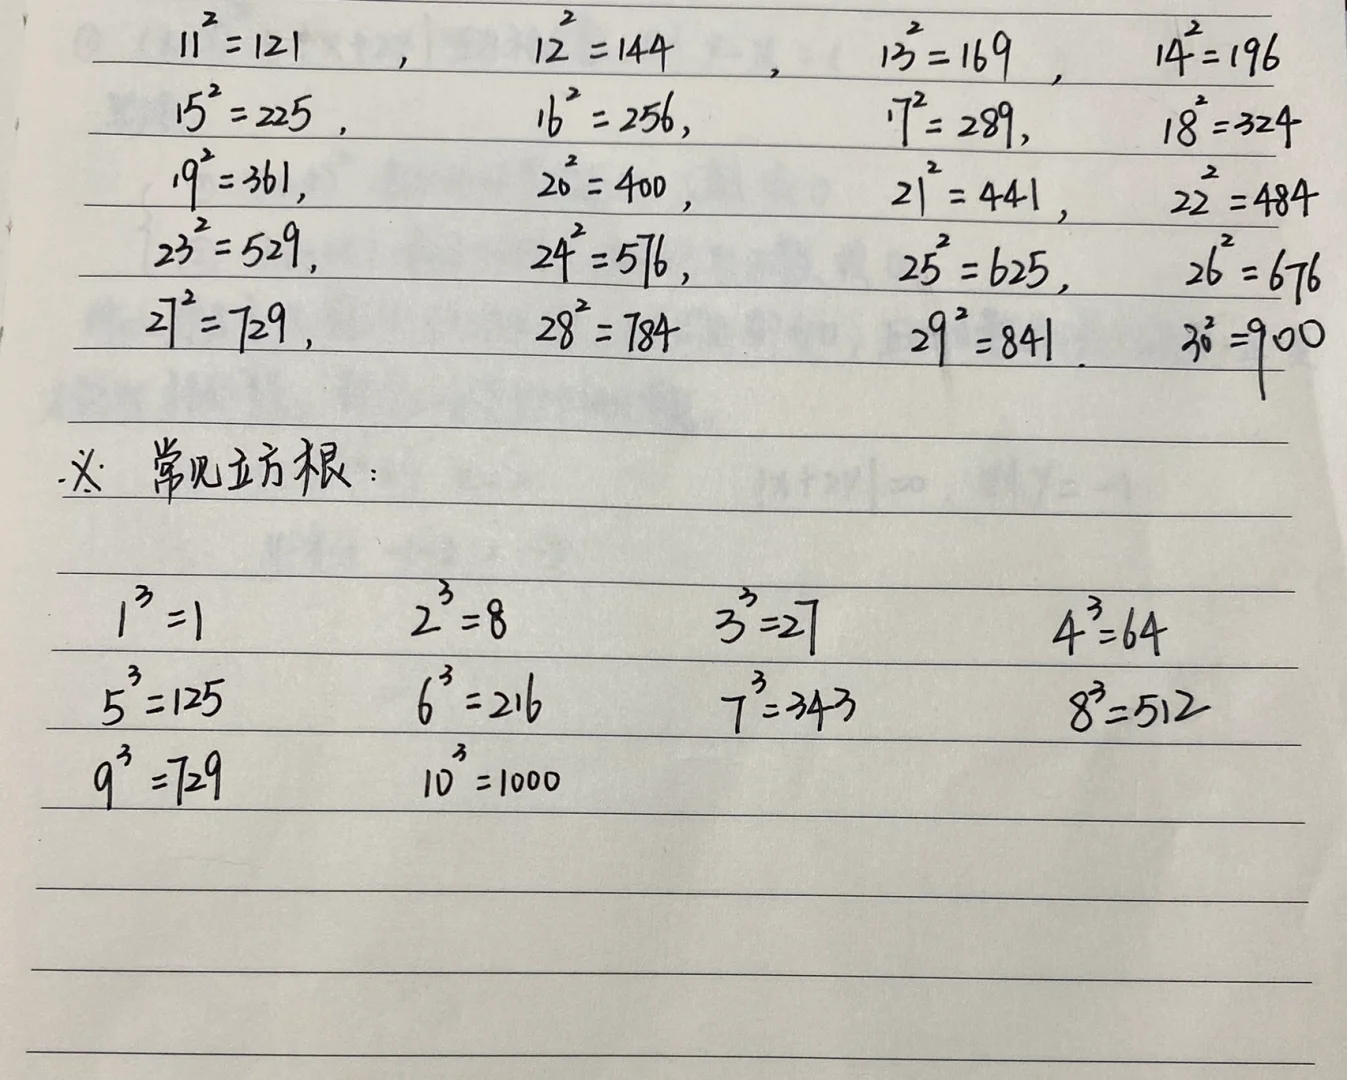 11²=121, 12²=144, 13²=169, 14²=196
15²=225, 16²=256, 17²=289, 18²=324
19²=361, 20²=400, 21²=441, 22²=484
23²=529, 24²=576, 25²=625, 26²=676
27²=729, 28²=784 29²=841. 30²=900
※ 常见立方根:
1³=1 2³=8 3³=27 4³=64
5³=125 6³=216 7³=343 8³=512
9³=729 10³=1000